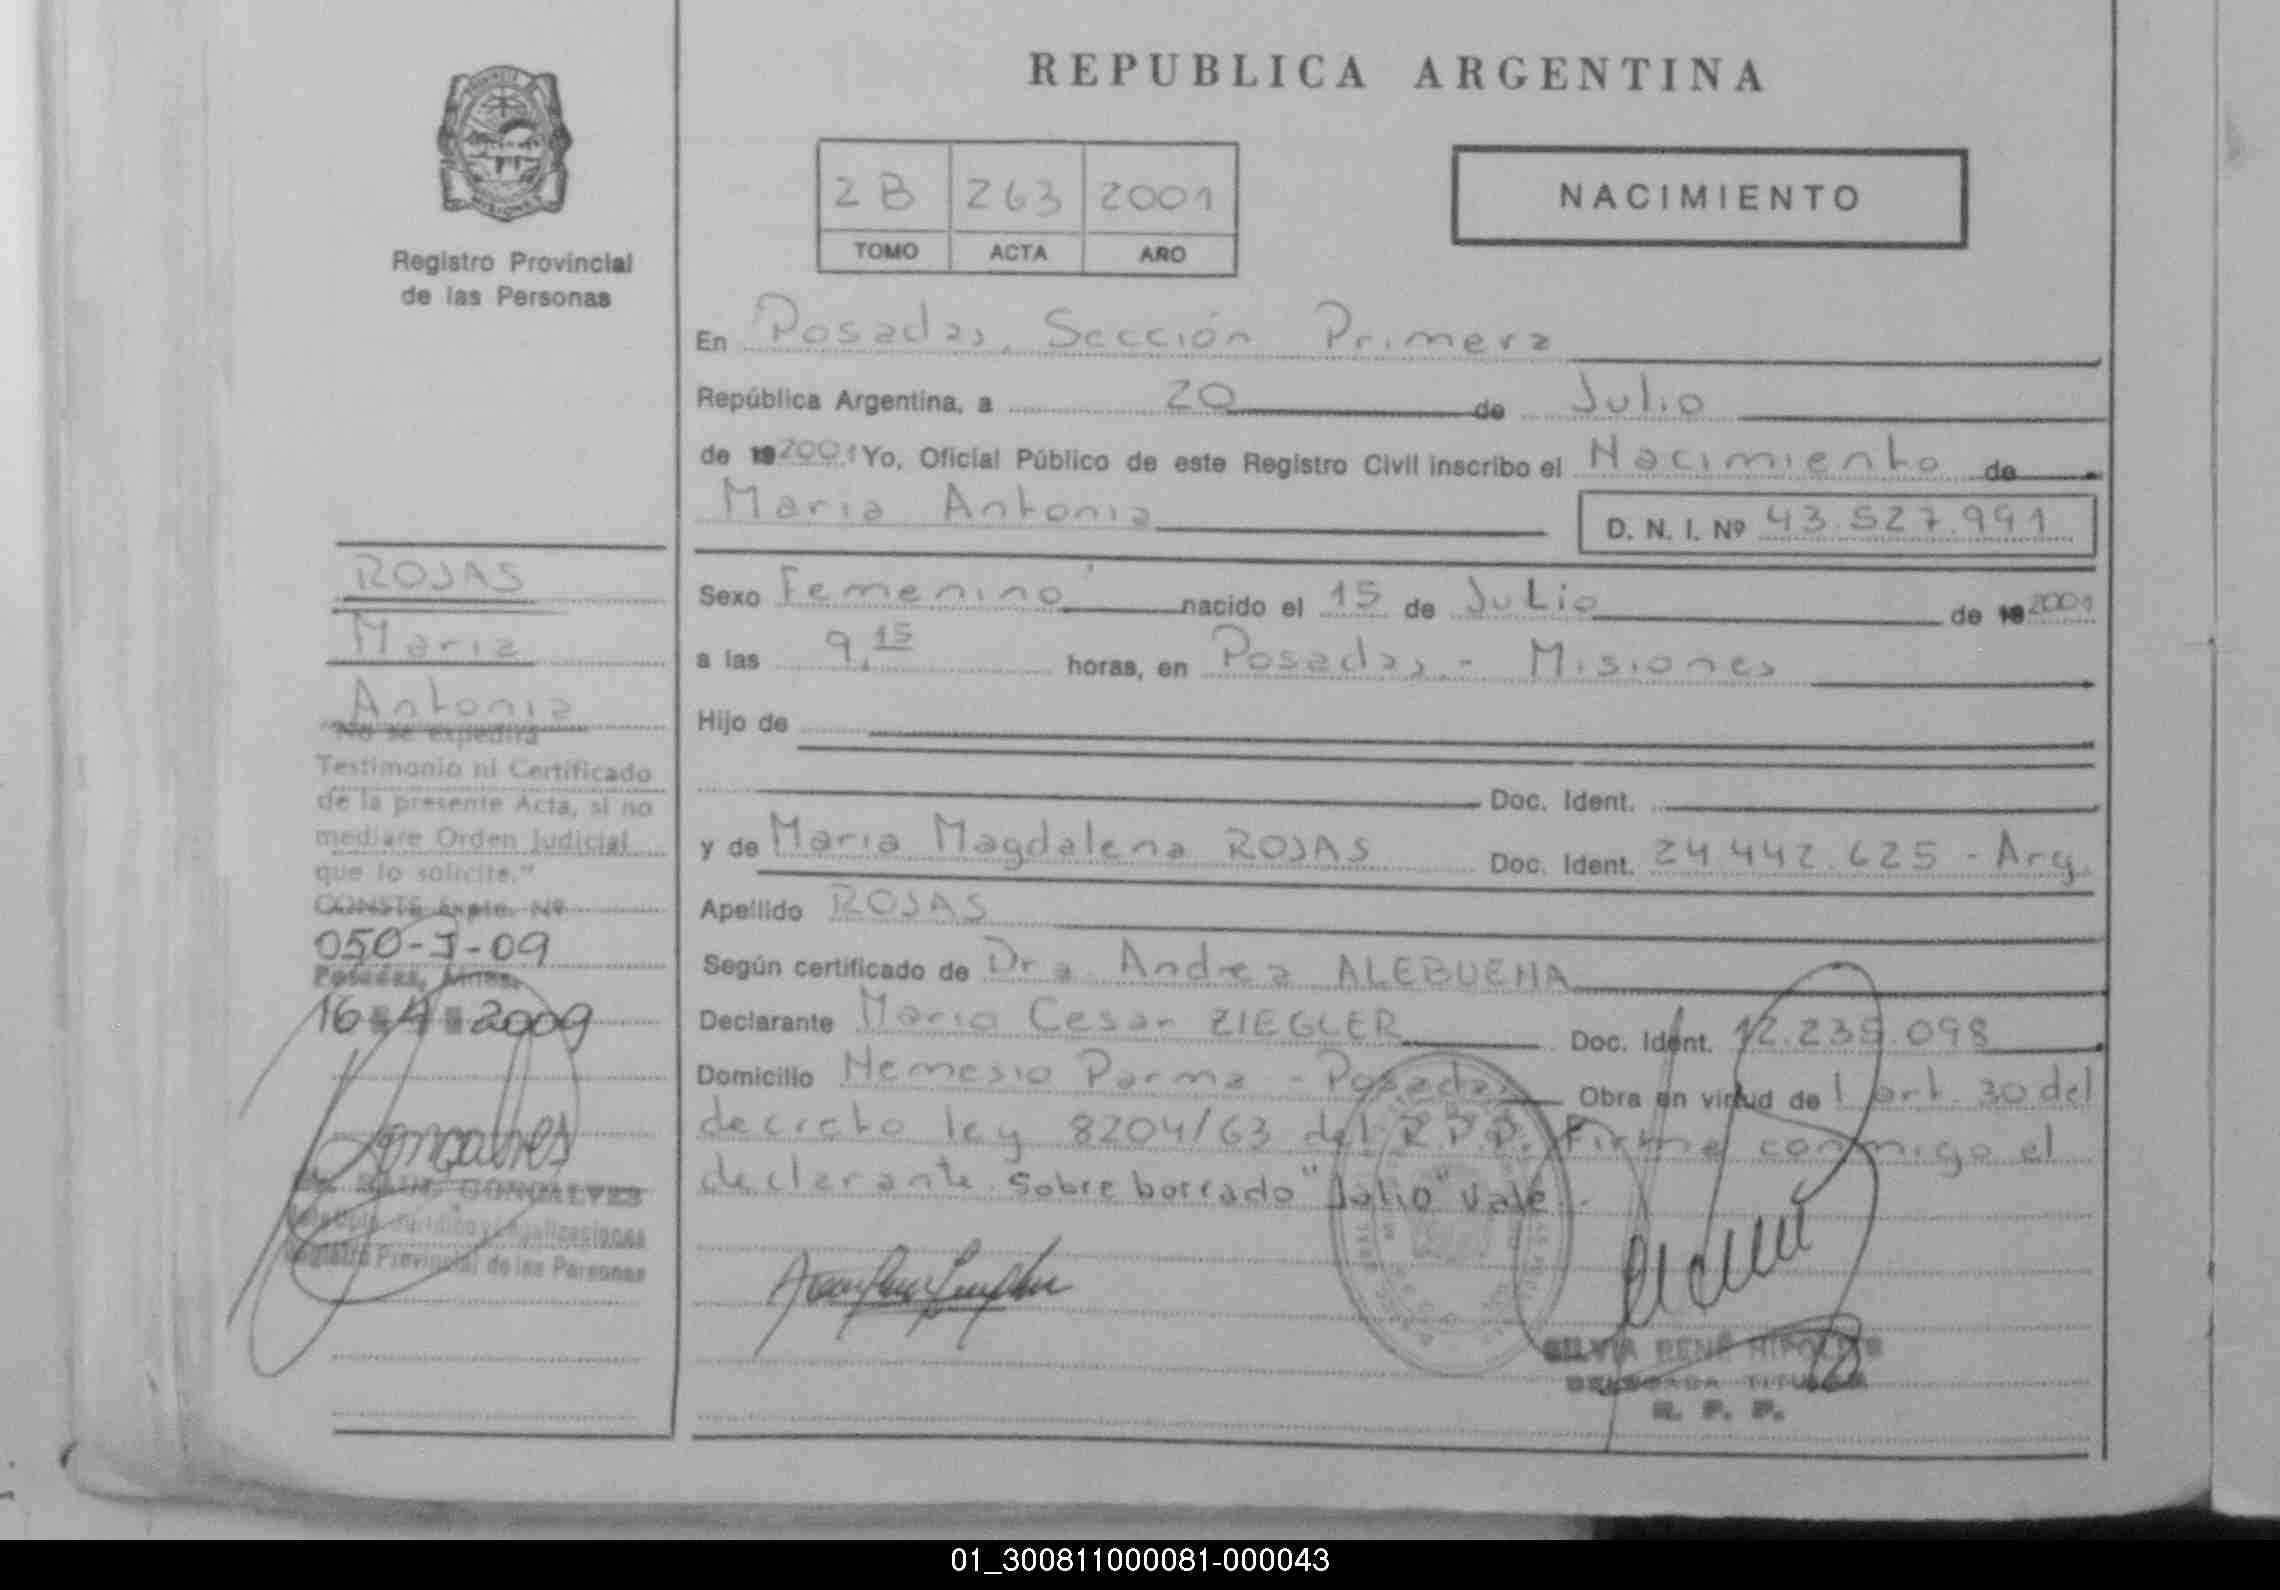 REPUBLICA ARGENTINA
2B 263 2001
TOMO ACTA AÑO
NACIMIENTO
Registro Provincial
de las Personas
En Posadas, Sección Primera
República Argentina, a 20 de Julio
de 19 2001 Yo, Oficial Público de este Registro Civil inscribo el Nacimiento de
Maria Antonia D. N. I. Nº 43.527.991
Sexo Femenino nacido el 15 de Julio de 19 2001
a las 9,15 horas, en Posadas.- Misiones
Hijo de
Doc. Ident.
y de Maria Magdalena ROJAS Doc. Ident. 24.442.625 - Arg.
Apellido ROJAS
Según certificado de Dra. Andrea ALEBUENA
Declarante Mario Cesar ZIEGLER Doc. Ident. 12.239.098
Domicilio Nemesio Parma - Posadas Obra en virtud del art. 30 del
decreto ley 8204/63 del R.P.P. Firma conmigo el
declarante. Sobre borrado "Julio" Vale.-
SILVIA RENÉ HIPOLITO
DELEGADA TITULAR
R. P. P.
ROJAS
Maria
Antonia
"No se expedirá
Testimonio ni Certificado
de la presente Acta, si no
mediare Orden Judicial
que lo solicite."
CONSTE Expte. Nº
050-J-09
Posadas, Mnes.
16-4-2009
Goncalves
Dr. RAUL GONCALVES
Jurídico y Legalizaciones
Registro Provincial de las Personas
01_300811000081-000043